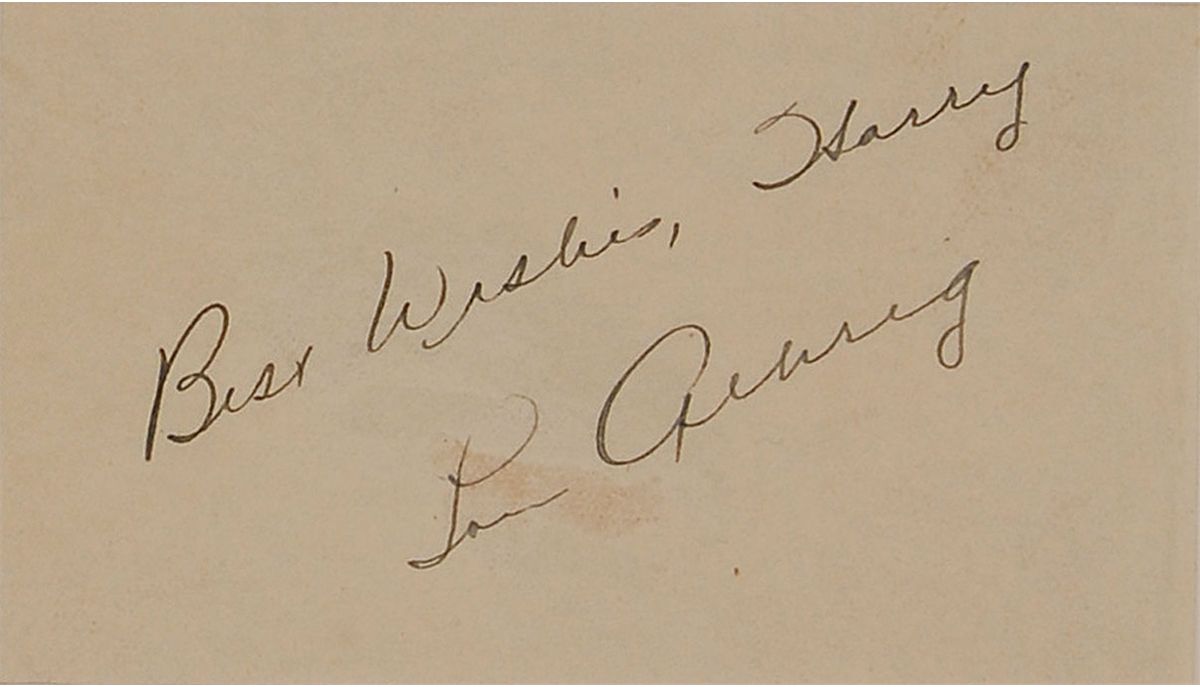 Best Wishes, Harry
Lou Gehrig